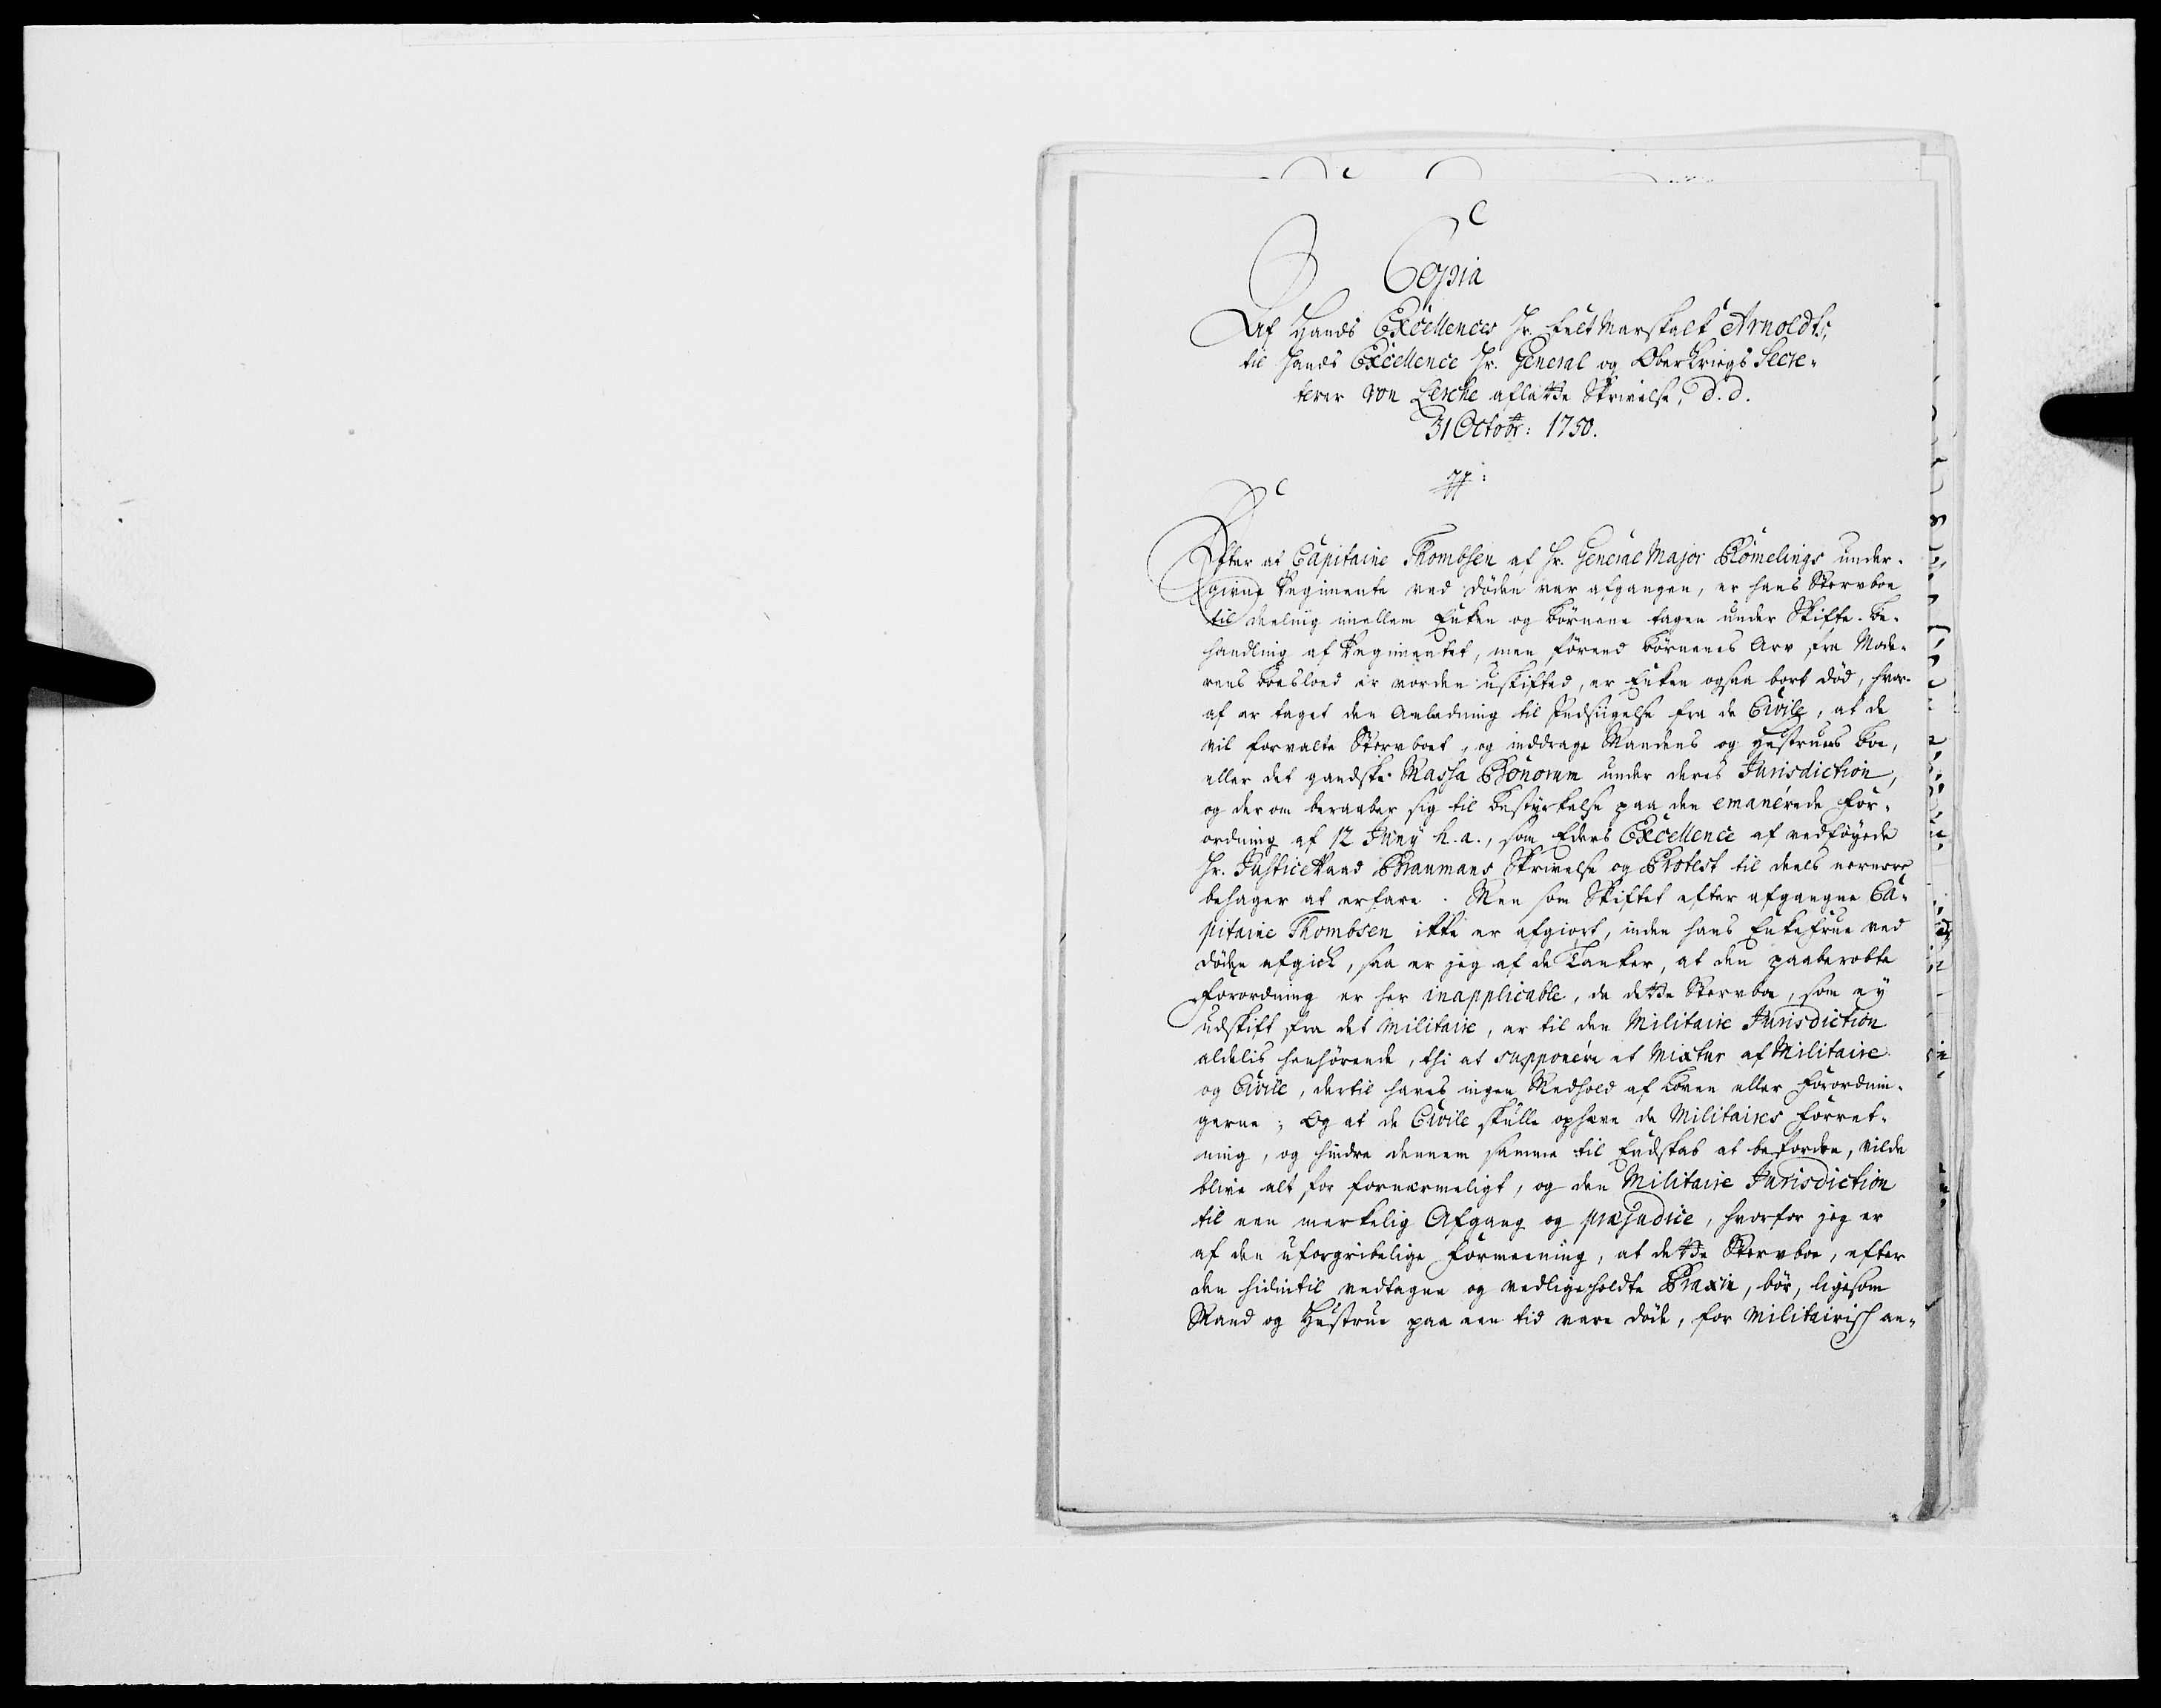 Copia
Af Hands Excellences Hr. Felt Marskalk Arnoldts,
til Hands Excellence Hr. General og Ober Krigs Secre-
terer von Lerche afladte Skrivelse, d. d.
31 Octobr: 1750.
Efter at Capitaine Thombsen af Hr. General Major Römelings under-
givne Regimente ved døden var afgangen, er hans Stervboe
til deeling imellem Enken og børnene tagen under Skifte-be-
handling af Regimentet, men førend børnenes Arv fra Mode-
rens boeslod er vorden uskifted, er Enken ogsaa bort død, hvor-
af er taget den Anledning til Indsigelse fra de Civile, at de
vil forvalte Stervboet, og inddrage Mandens og Hustrues boe,
eller det gandske Massa Bonorum under deres Jurisdiction,
og derom beraaber sig til bestyrkelse paa den emanérede For-
ordning af 12 Juny h. a., som Eders Excellence af vedføyede
Hr. Justice Raad Braumans Skrivelse og Protest til deels nærmere
behager at erfare. Men som Skiftet efter afgangne Ca-
pitaine Thombsen ikke er afgiort, inden hans EnkeFrue ved
døden afgick, saa er jeg af de Tanker, at den paaberobte
Forordning er her inapplicable, da dette Stervboe, som ey
udskift fra det Militaire, er til den Militaire Jurisdiction
aldelis henhørende, thi at supponére et Mixtur af Militaire
og Civile, dertil haves ingen Medhold af Loven eller Forordnin-
gerne; Og at de Civile skulle ophæve de Militaires Forret-
ning, og hindre dennem samme til Endskab at befordre, vilde
blive alt for fornærmeligt, og den Militaire Jurisdiction
til een merkelig Afgang og præjudice, hvorfor jeg er
af den uforgribelige Formeening, at dette Stervboe, efter
den hidintil vedtagne og vedligeholdte Praxin, bør, ligesom
Mand og Hustrue paa een tid vare døde, for Militairisch an-